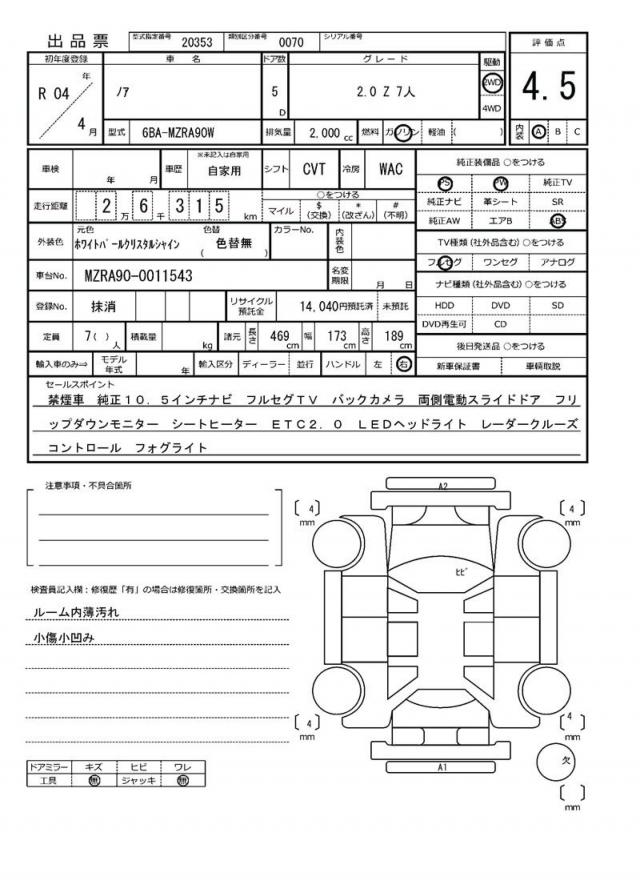 出品票 型式指定番号 20353 類別区分番号 0070 シリアル番号
初年度登録 車名 ドア数 グレード 駆動 評価点
R 04 年 4 月 ノア 5 D 2.0 Z 7人 2WD 4WD 4.5
型式 6BA-MZRA90W 排気量 2,000 cc 燃料 ガソリン 軽油 ( ) 内装 A B C
車検 年 月 車歴 ※未記入は自家用 自家用 シフト CVT 冷房 WAC
走行距離 2 万 6 千 3 1 5 km ○をつける マイル $ (交換) * (改ざん) # (不明)
外装色 元色 ホワイトパールクリスタルシャイン 色替 ( 色替無 ) カラーNo. 内装色
車台No. MZRA90-0011543 名変期限 月 日
登録No. 抹消 リサイクル預託金 14,040円預託済 未預託
定員 7( ) 人 積載量 kg 諸元 長さ 469 cm 幅 173 cm 高さ 189 cm
輸入車のみ⇒ モデル年式 年 輸入区分 ディーラー 並行 ハンドル 左 右
純正装備品 ○をつける
PS PW 純正TV
純正ナビ 革シート SR
純正AW エアB ABS
TV種類(社外品含む)○をつける
フルセグ ワンセグ アナログ
ナビ種類(社外品含む)○をつける
HDD DVD SD
DVD再生可 CD
後日発送品 ○をつける
新車保証書 車輌取説
セールスポイント
禁煙車 純正10.5インチナビ フルセグTV バックカメラ 両側電動スライドドア フリ
ップダウンモニター シートヒーター ETC2.0 LEDヘッドライト レーダークルーズ
コントロール フォグライト
注意事項・不具合箇所
検査員記入欄:修復歴「有」の場合は修復箇所・交換箇所を記入
ルーム内薄汚れ
小傷小凹み
ドアミラー キズ ヒビ ワレ
工具 無 ジャッキ 無
A2
[ 4 ] mm
[ 4 ] mm
ヒビ
[ 4 ] mm
[ 4 ] mm
A1
欠
[ ] mm